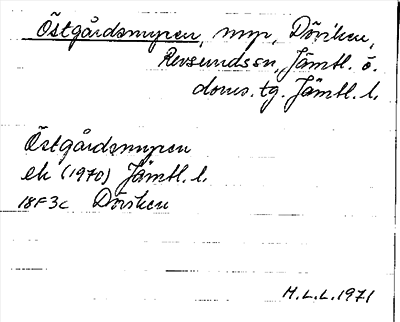 Östgårdsmyren, myr, Döviken,
Revsundssn, Jämtl. ö.
doms. tg. Jämtl. l.
Östgårdsmyren
ek (1970) Jämtl. l.
18F3c Döviken
H.L.L. 1971